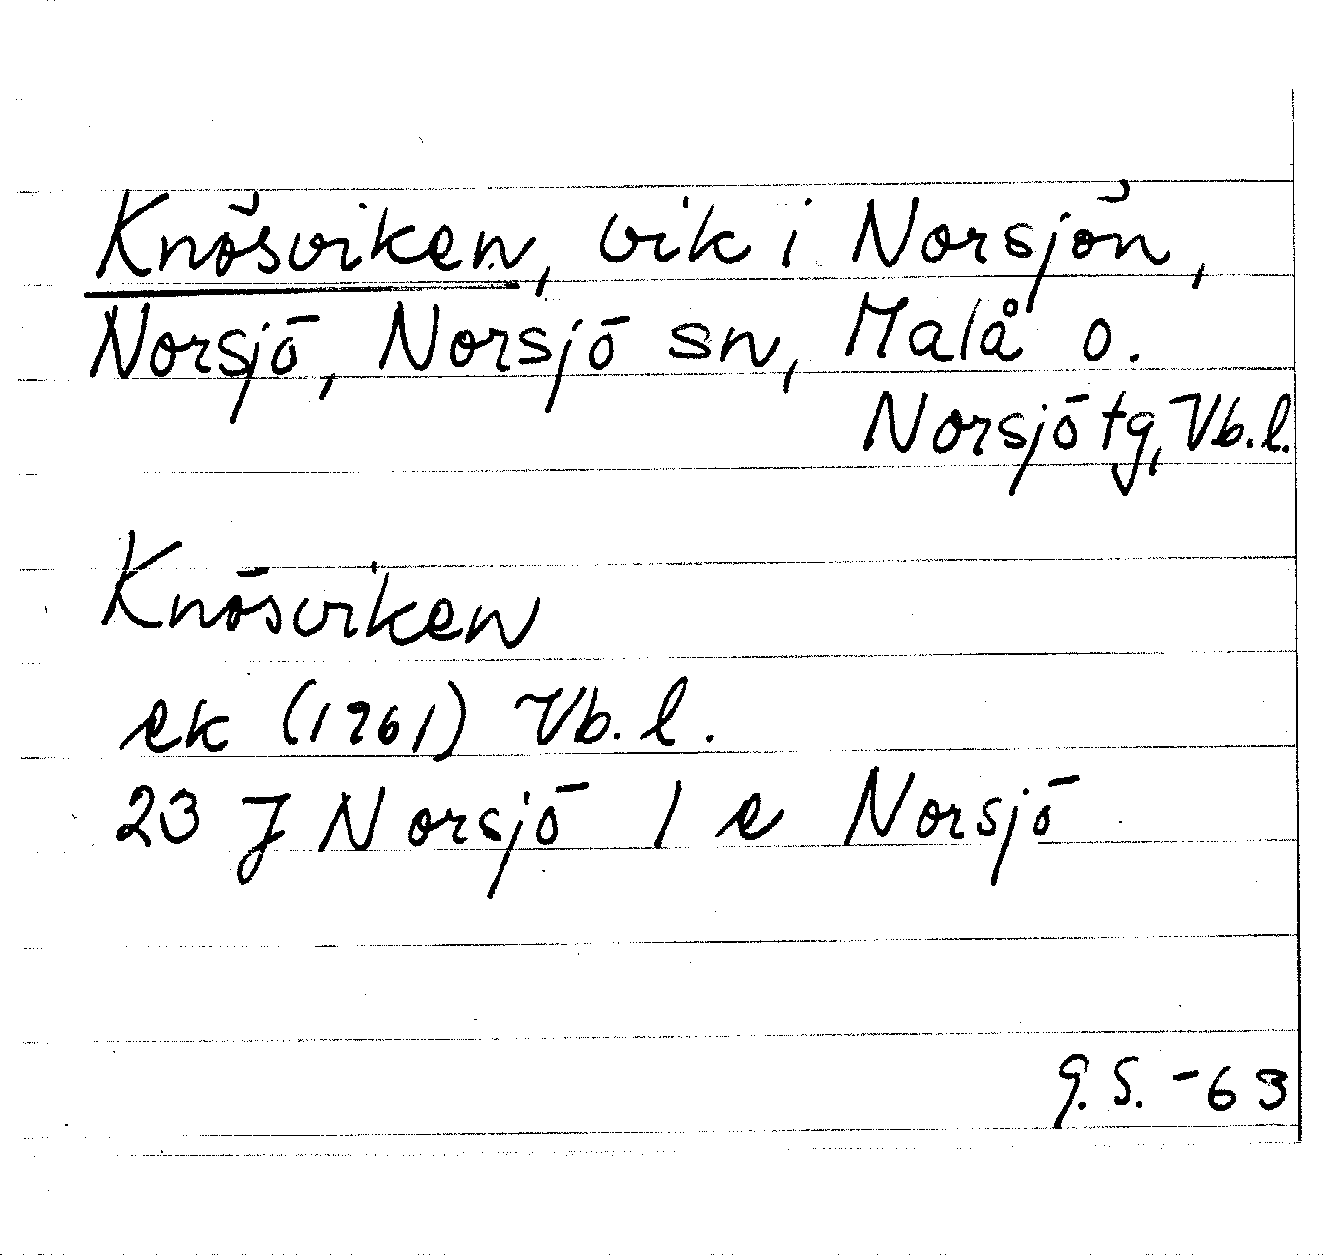 Knösviken, vik i Norsjön,
Norsjö, Norsjö sn, Malå o.
Norsjö tg, Vb.l.
Knösviken
ek (1961) Vb. l.
23 J Norsjö 1 e Norsjö
G. S. -63